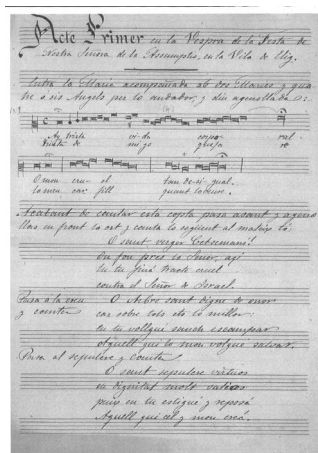 Acte Primer en la Vespra de la Festa de
Nostra Señora de la Assumptio, en la Vila de Elig.
Entra la Maria acompañada ab dos Maries y qua
tre o sis Angels per lo andador, y diu agenollada:
Ay trista vida corporal
O mon cruel tan desigual.
Trista de mi yo que faré
lo meu car fill quant lo veure.
Acabant de cantar esta copla pasa avant y ageno
llas en front lo ort y canta lo següent al mateix to:
O sant verger Getsemaní!
On fon pres lo Señor, açi
En tu finá tracte cruel
contra el Señor de Israel.
Pasa a la creu O Arbre sant digne de onor
y canta car sobre tots ets lo millor:
en tu volgué sanch escampar
Aquell qui lo mon volgué salvar.
Pasa al sepulcre y canta
O sanct sepulcre virtuos
en dignitat molt valeros
puix en tu estigué y reposá
Aquell qui cel y mon creá.